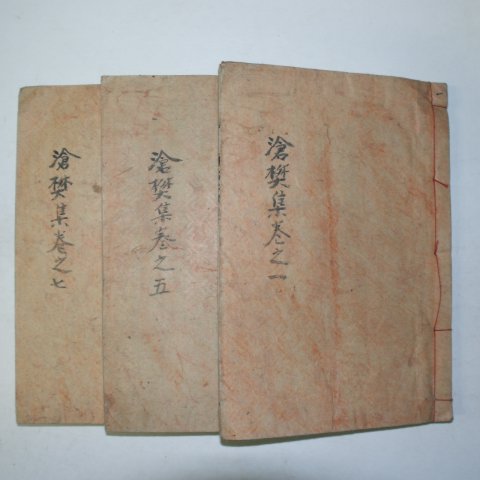 滄樊集卷之一
滄樊集卷之五
滄樊集卷之七